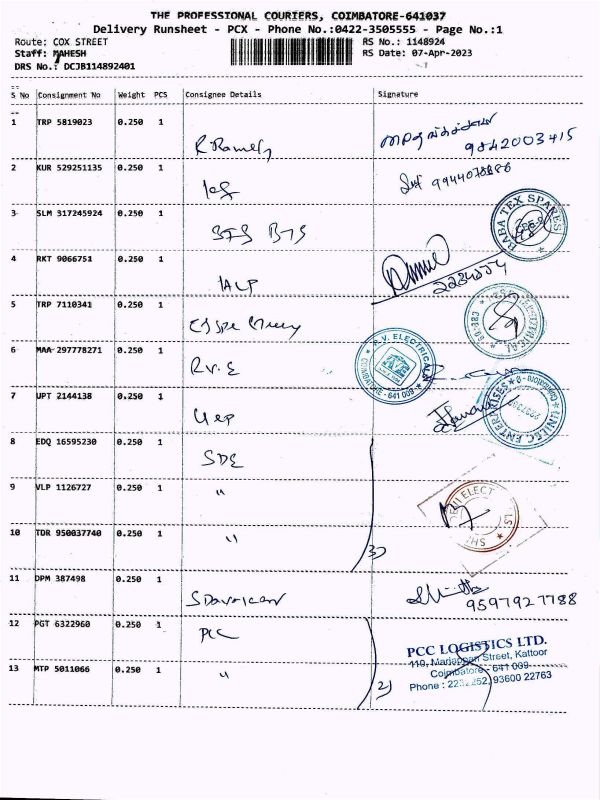 THE PROFESSIONAL COURIERS, COIMBATORE-641037
Delivery Runsheet - PCX - Phone No.:0422-3505555 - Page No.:1
Route: COX STREET
RS No.: 1148924
Staff: MAHESH
RS Date: 07-Apr-2023
DRS No.: DCJB114892401
S No Consignment No Weight PCS Consignee Details Signature
1 TRP 5819023 0.250 1
9842003415
2 KUR 529251135 0.250 1
3 SLM 317245924 0.250 1 BABA TEX SPARES
4 RKT 9066751 0.250 1
5 TRP 7110341 0.250 1
6 MAA 297778271 0.250 1 R.V.E R.V. ELECTRICALS COIMBATORE - 641 009
7 UPT 2144138 0.250 1 UNILEC ENTERPRISES
8 EDQ 16595230 0.250 1 SDE
9 VLP 1126727 0.250 1 "
10 TDR 950037740 0.250 1 " 3)
11 DPM 387498 0.250 1 9597927788
12 PGT 6322960 0.250 1 PCC
PCC LOGISTICS LTD.
110, Mariappan Street, Kattoor
13 MTP 5011066 0.250 1 " 2)
Coimbatore - 641 009
Phone : 2232252, 93600 22763